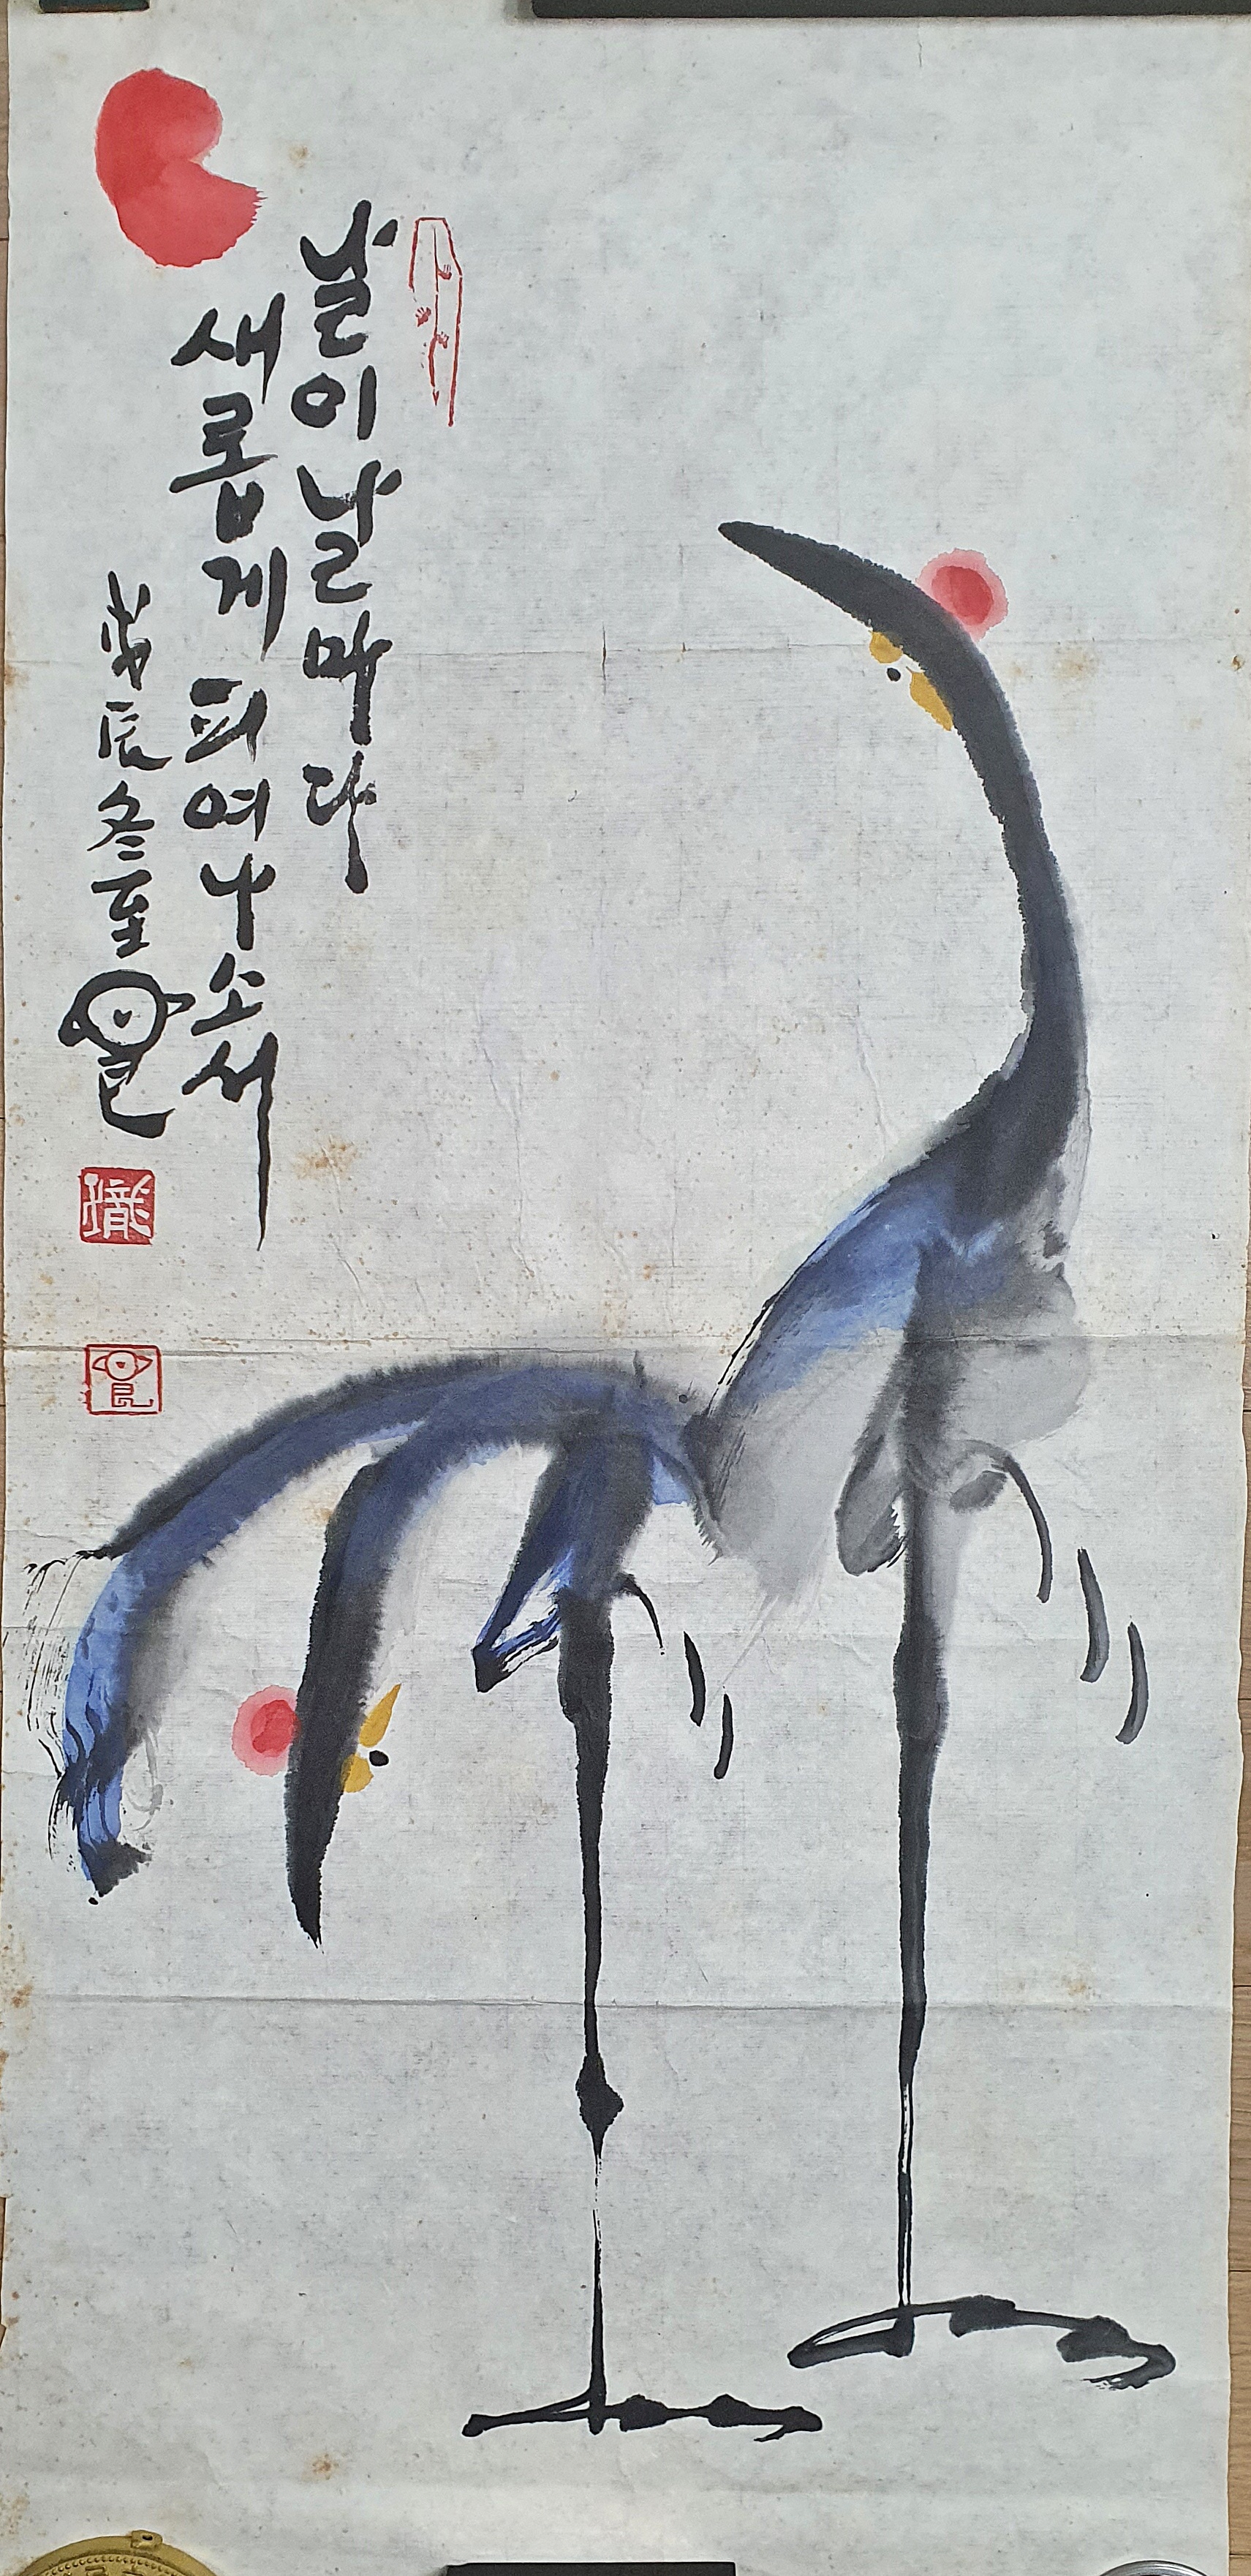 날이날마다
새롭게피여나소서
戊辰冬至